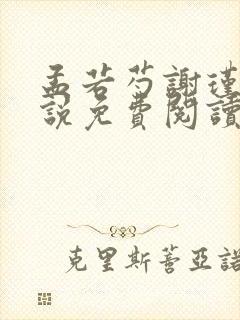 孟若芍謝瑾
說免費閱讀
克里斯蒂亞諾